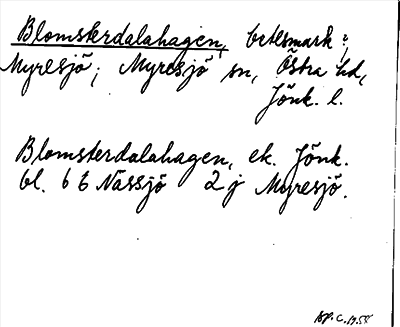 Blomsterdalahagen, betesmark i
Myresjö; Myresjö sn, Östra hd,
Jönk. l.
Blomsterdalahagen, ek. Jönk.
bl. 6 E Nässjö 2 j Myresjö.